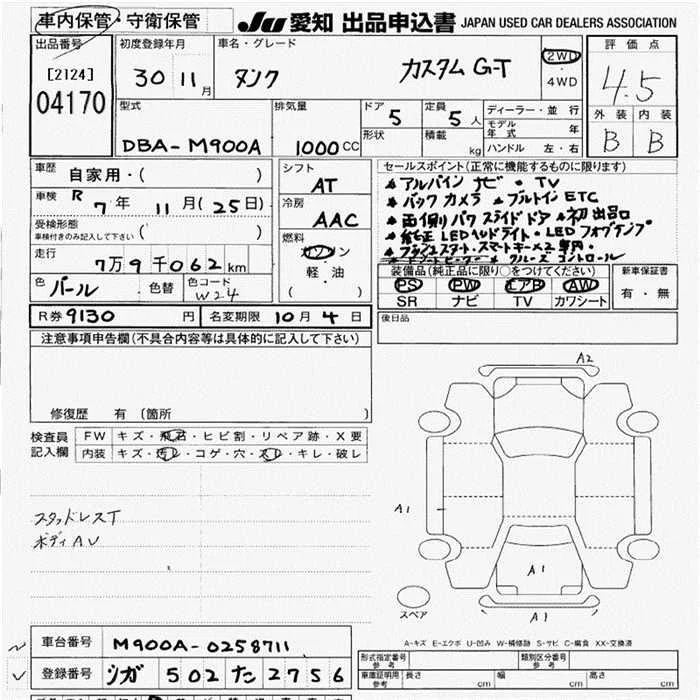 車内保管・守衛保管
JU 愛知 出品申込書 JAPAN USED CAR DEALERS ASSOCIATION
出品番号
[2124]
04170
初度登録年月
30 11月
車名・グレード
タンク カスタム G-T
2WD
4WD
評価点
4.5
外装 内装
B B
型式
DBA-M900A
排気量
1000 CC
ドア 5
形状
定員 5人
積載 kg
ディーラー・並行
モデル年式 年
ハンドル 左・右
車歴
自家用・( )
車検 R 7年 11月(25日)
受検形態
車検付きのみ記入して下さい ( )
走行
7万9千062km
色 パール 色替 色コード W24
シフト
AT
冷房
AAC
燃料
ガソリン
軽・油
( )
セールスポイント(正常に機能するものに限ります)
アルパイン ナビ・TV
バックカメラ・ブルトイン ETC
両側パワスライドドア 初出品
純正LEDヘッドライト・LEDフォグランプ
プッシュスタート・スマートキー×2
クルーズコントロール
装備品(純正品に限り○をつけてください)
PS PW エアB AW
SR ナビ TV カワシート
新車保証書
有・無
R券 9130 円 名変期限 10月4日
後日品
注意事項申告欄(不具合内容等は具体的に記入して下さい)
修復歴 有 (箇所 )
検査員記入欄
FW キズ・飛石・ヒビ割・リペア跡・X要
内装 キズ・汚レ・コゲ・穴・スレ・キレ・破レ
スタッドレスT
ボディAU
A2
A1
A1
A1
スペア
A-キズ E-エクボ U-凹み W-補修跡 S-サビ C-腐食 XX-交換済
車台番号 M900A-0258711
登録番号 シガ 502 た 2756
形式指定番号 参考
類別区分番号 参考
車庫証明用 参考 長さ cm 幅 cm 高さ cm